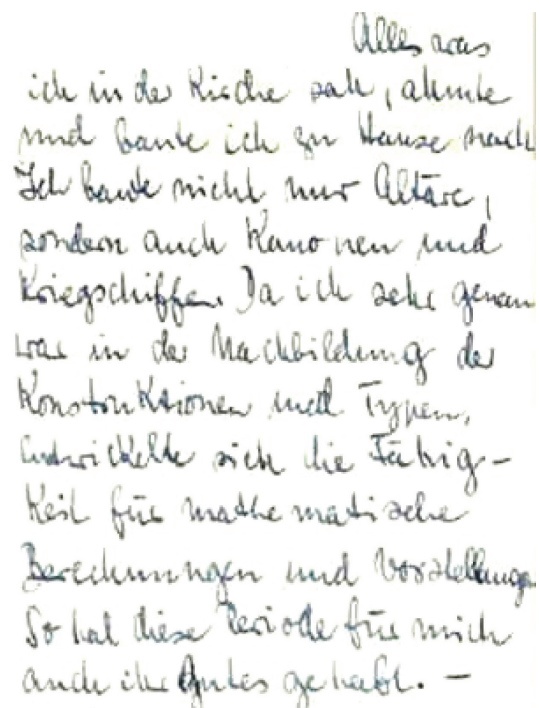 Alles was
ich in der Kirche sah, ahmte
und baute ich zu Hause nach
Ich baute nicht nur Altäre,
sondern auch Kanonen und
Kriegschiffe. Da ich sehr genau
war in der Nachbildung der
Konstruktionen und Typen,
entwickelte sich die Fähig-
keit für mathematische
Berechnungen und Vorstellungen
So hat diese Periode für mich
auch ihr Gutes gehabt. –